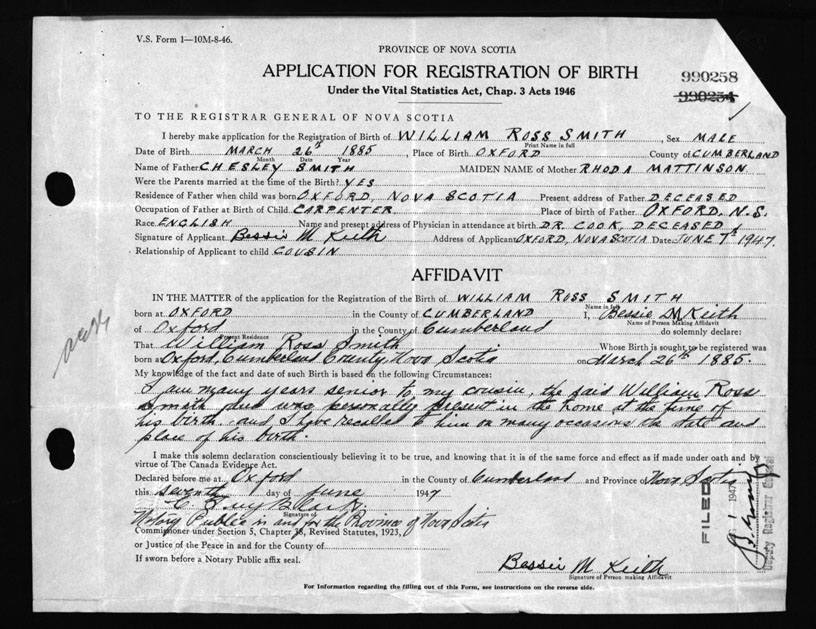 V.S. Form 1—10M-8-46.
PROVINCE OF NOVA SCOTIA
APPLICATION FOR REGISTRATION OF BIRTH
990258
Under the Vital Statistics Act, Chap. 3 Acts 1946
990254
TO THE REGISTRAR GENERAL OF NOVA SCOTIA
I hereby make application for the Registration of Birth of WILLIAM ROSS SMITH Sex MALE
Print Name in full
Date of Birth MARCH 26th 1885, Place of Birth OXFORD County of CUMBERLAND
Month Date Year
Name of Father CHESLEY SMITH MAIDEN NAME of Mother RHODA MATTINSON
Were the Parents married at the time of the Birth? YES
Residence of Father when child was born OXFORD, NOVA SCOTIA Present address of Father DECEASED
Occupation of Father at Birth of Child CARPENTER Place of birth of Father OXFORD, N.S.
Race ENGLISH Name and present address of Physician in attendance at birth DR. COOK, DECEASED
Signature of Applicant Bessie M Keith Address of Applicant OXFORD, NOVA SCOTIA Date JUNE 7th 1947.
Relationship of Applicant to child COUSIN
AFFIDAVIT
IN THE MATTER of the application for the Registration of the Birth of WILLIAM ROSS SMITH
Name in full
born at OXFORD in the County of CUMBERLAND I, Bessie M Keith
Name of Person Making Affidavit
of Oxford in the County of Cumberland do solemnly declare:
Present Residence
That William Ross Smith Whose Birth is sought to be registered was
born at Oxford, Cumberland County, Nova Scotia on March 26th 1885.
My knowledge of the fact and date of such Birth is based on the following Circumstances:
I am many years senior to my cousin, the said William Ross
Smith and was personally present in the home at the time of
his birth. and I have recalled to him on many occasions the date and
place of his birth.
I make this solemn declaration conscientiously believing it to be true, and knowing that it is of the same force and effect as if made under oath and by
virtue of The Canada Evidence Act.
Declared before me at Oxford in the County of Cumberland and Province of Nova Scotia
this seventh day of June 1947
Signature of
Notary Public in and for the Province of Nova Scotia
Commissioner under Section 5, Chapter 38, Revised Statutes, 1923,
or Justice of the Peace in and for the County of
If sworn before a Notary Public affix seal.
Bessie M Keith
Signature of Person making Affidavit
For Information regarding the filling out of this Form, see instructions on the reverse side.
FILED
1 1947
Deputy Registrar General